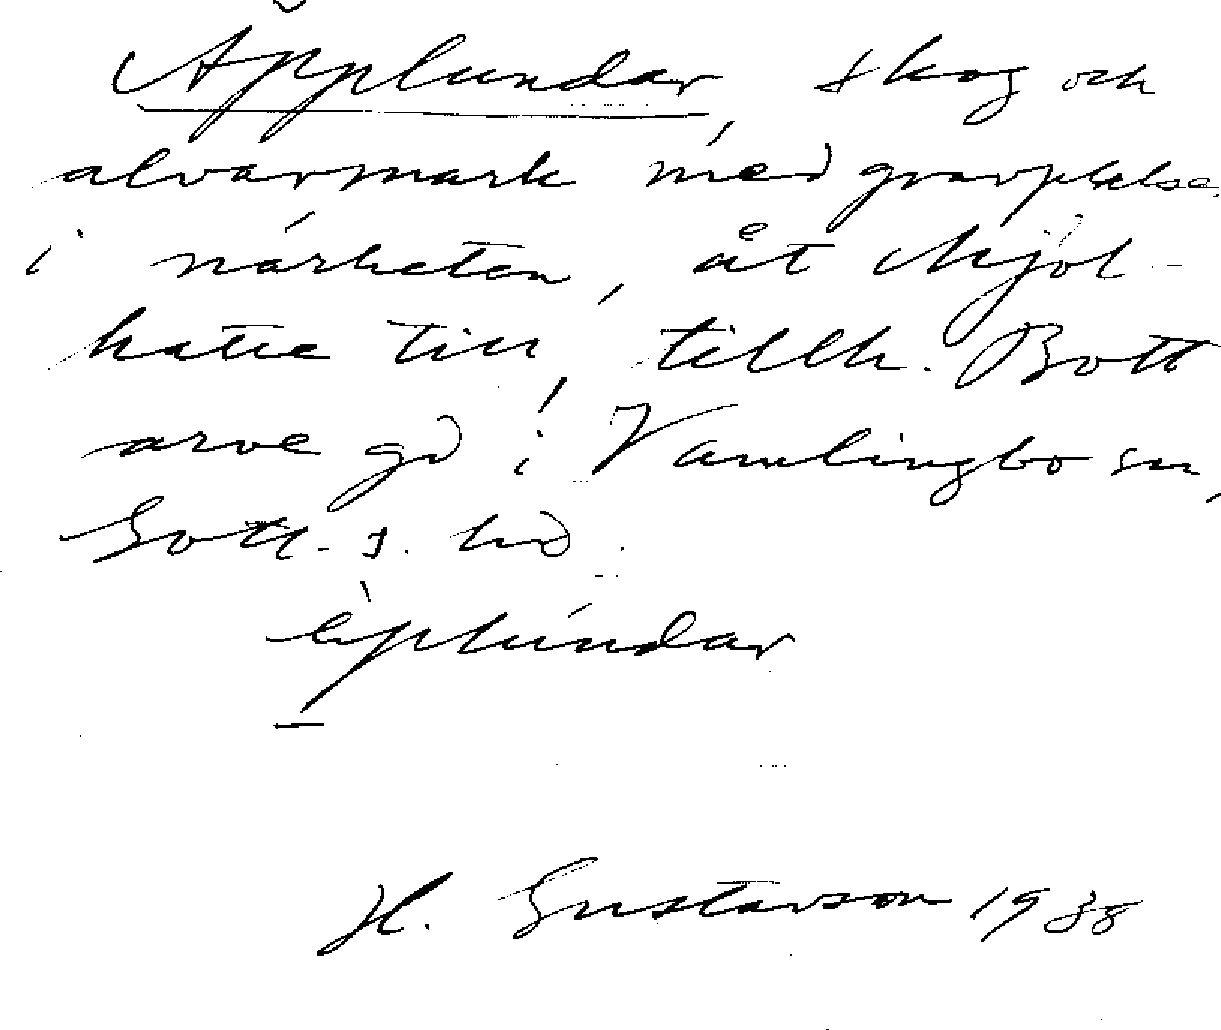 Äpplundar, skog och
alvarmark med
i närheten, åt Mjöl-
hatte till, tillh. Bott
arve gd i Vamlingbo sn,
Gotl. s. hd.
äplúndar
H. Gustavson 1938